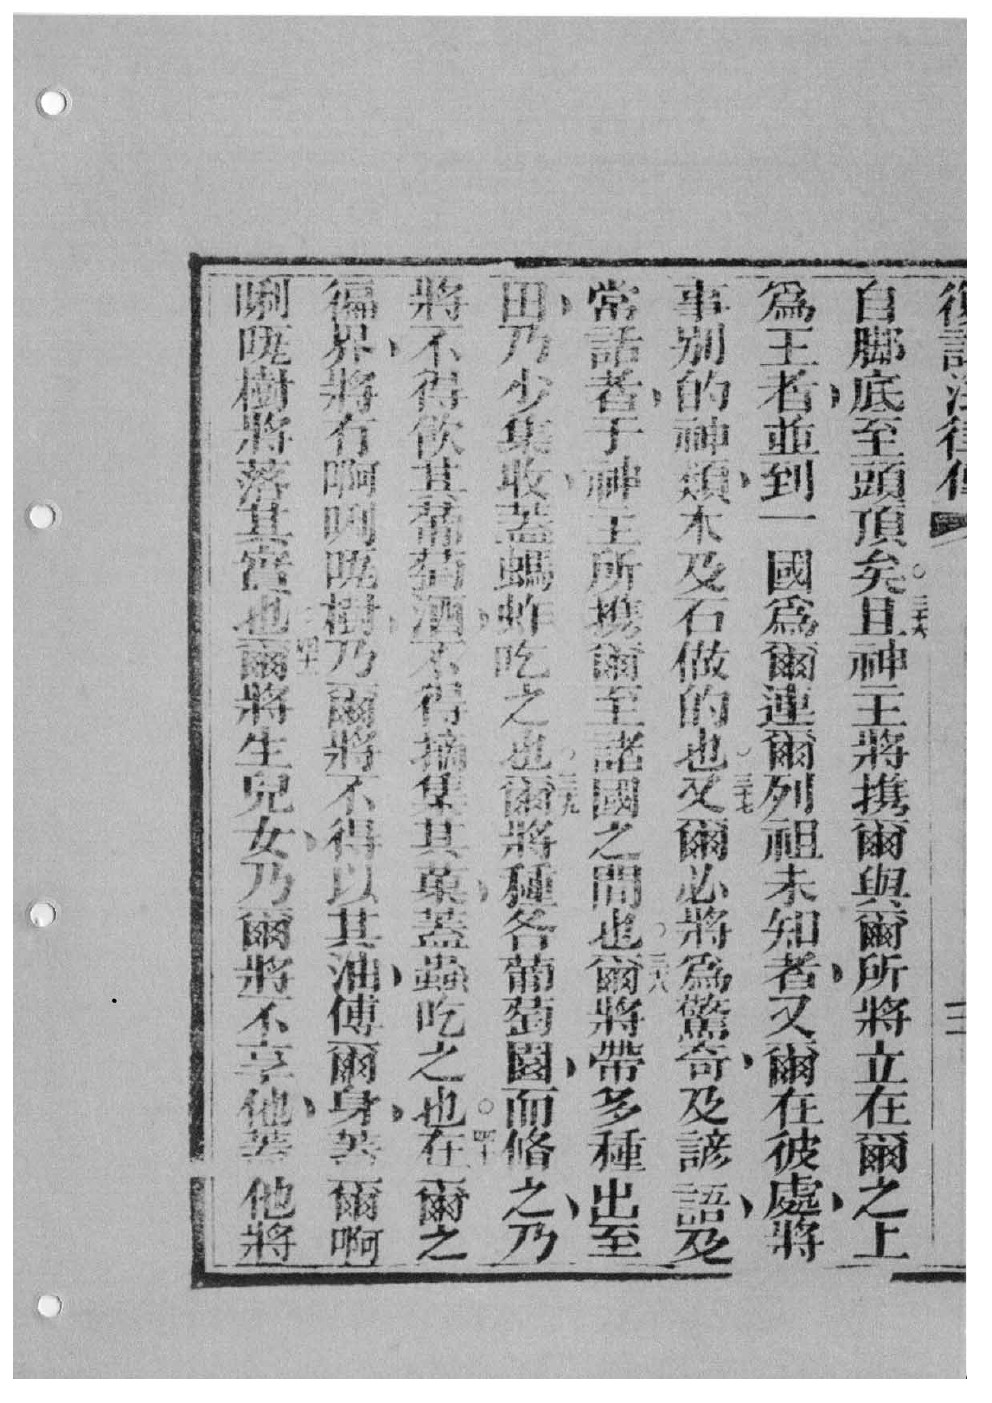 復講法律傳 二
自脚底至頭頂矣○三十六且神主將携爾與爾所將立在爾之上
爲王者並到一國爲爾連爾列祖未知者又爾在彼處將
事别的神類木及石做的也○三十七又爾必將爲驚奇及諺語及
常話者于神主所携爾至諸國之間也○三十八爾將帶多種出至
田乃少集收蓋螞蚱吃之也○三十九爾將種各葡萄園而俻之乃
將不得飲其葡萄酒不得摘集其菓蓋蟲吃之也○四十在爾之
徧界將有啊唎㕸樹乃爾將不得以其油傅爾身葢爾啊
唎㕸樹將落其實也四十一爾將生兒女乃爾將不享他葢他將